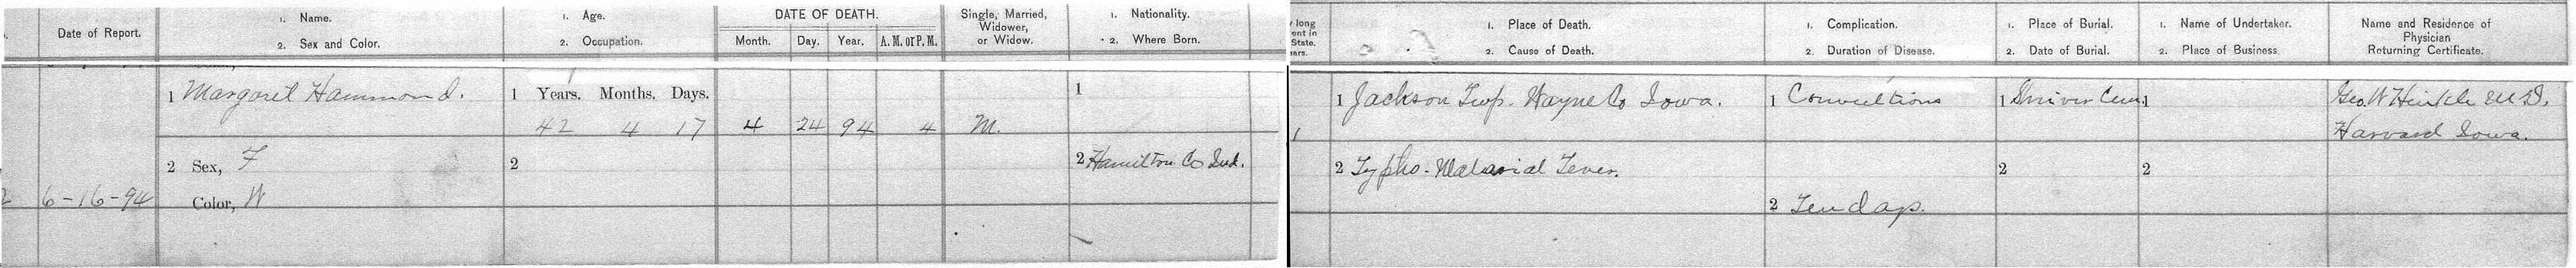 Date of Report.
1. Name.
2. Sex and Color.
1. Age.
2. Occupation.
DATE OF DEATH.
Month. Day. Year. A. M. or P. M.
Single, Married,
Widower,
or Widow.
1. Nationality.
2. Where Born.
long
ent in
State.
ears.
1. Place of Death.
2. Cause of Death.
1. Complication.
2. Duration of Disease.
1. Place of Burial.
2. Date of Burial.
1. Name of Undertaker.
2. Place of Business.
Name and Residence of
Physician
Returning Certificate.
1 Margaret Hammond.
1 Years. Months. Days.
42 4 17
4 24 94 4
M.
1
2 Sex, F
Color, W
2
2 Hamilton Co Ind.
6-16-94
1 Jackson Twp. Wayne Co Iowa.
2 Typho-Malarial Fever.
1 Convultions
2 Ten days.
1 Cem.
2
1
2
Geo. W Hinkle M.D.
Harvard Iowa.